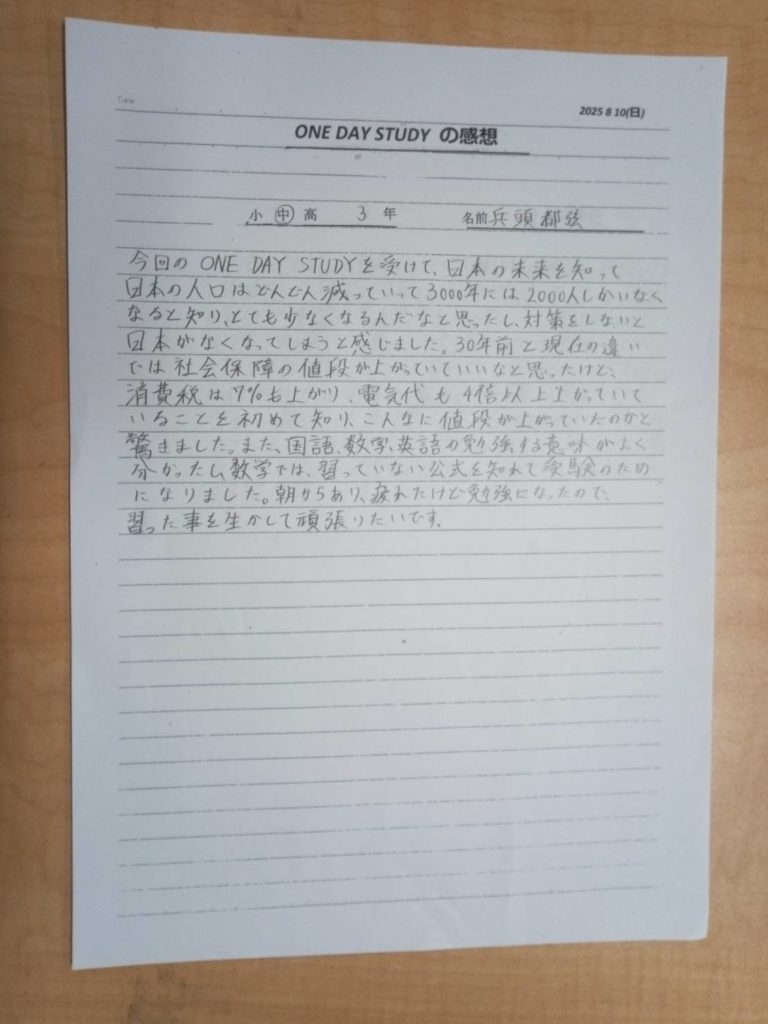 Date
2025 8 10(日)
ONE DAY STUDY の感想
小 中 高 3 年 名前 兵頭都弦
今回の ONE DAY STUDYを受けて、日本の未来を知って
日本の人口はどんどん減っていって3000年には2000人しかいなく
なると知り、とても少なくなるんだなと思ったし、対策をしないと
日本がなくなってしまうと感じました。30年前と現在の違い
では社会保障の値段が上がっていていいなと思ったけど、
消費税は7%も上がり、電気代も4倍以上上がっていて
いることを初めて知り、こんなに値段が上がっていたのかと
驚きました。また、国語、数学、英語の勉強する意味がよく
分かったし、数学では、習っていない公式を知れて受験のため
になりました。朝からあり、疲れたけど勉強になったので、
習った事を生かして頑張りたいです。